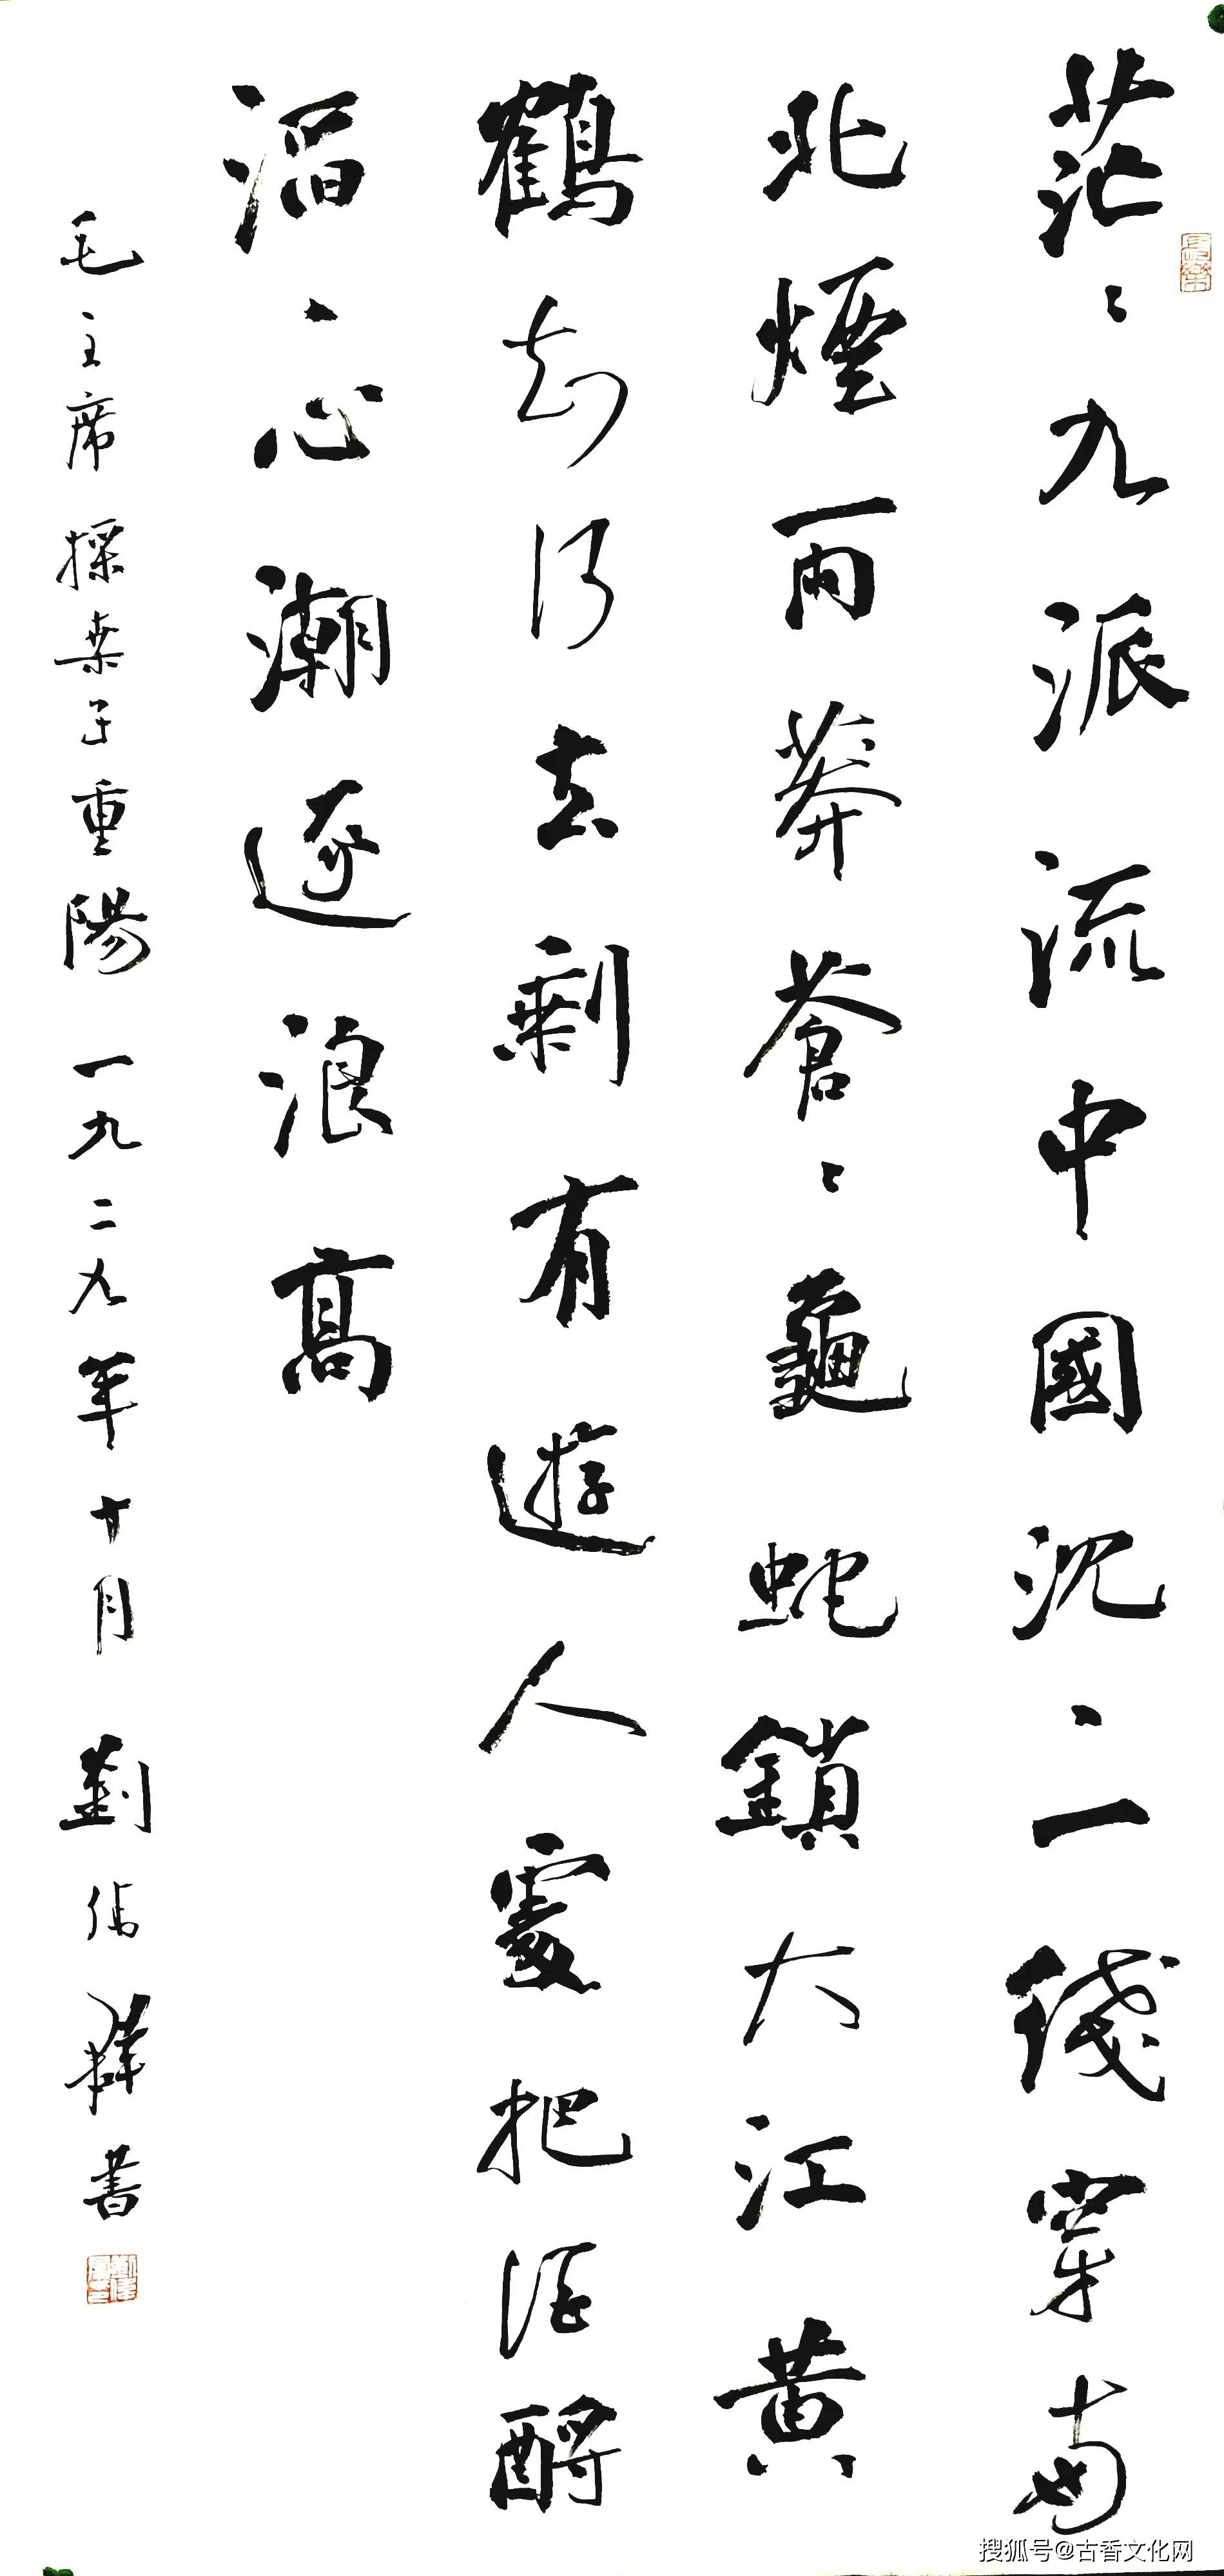 茫〻九派流中國沈〻一綫穿南
北煙雨莽蒼〻龜蛇鎖大江黄
鶴知何去剩有遊人處把酒酹
滔〻心潮逐浪高
毛主席採桑子重陽 一九二九年十月 劉 群書
搜狐号@古香文化网